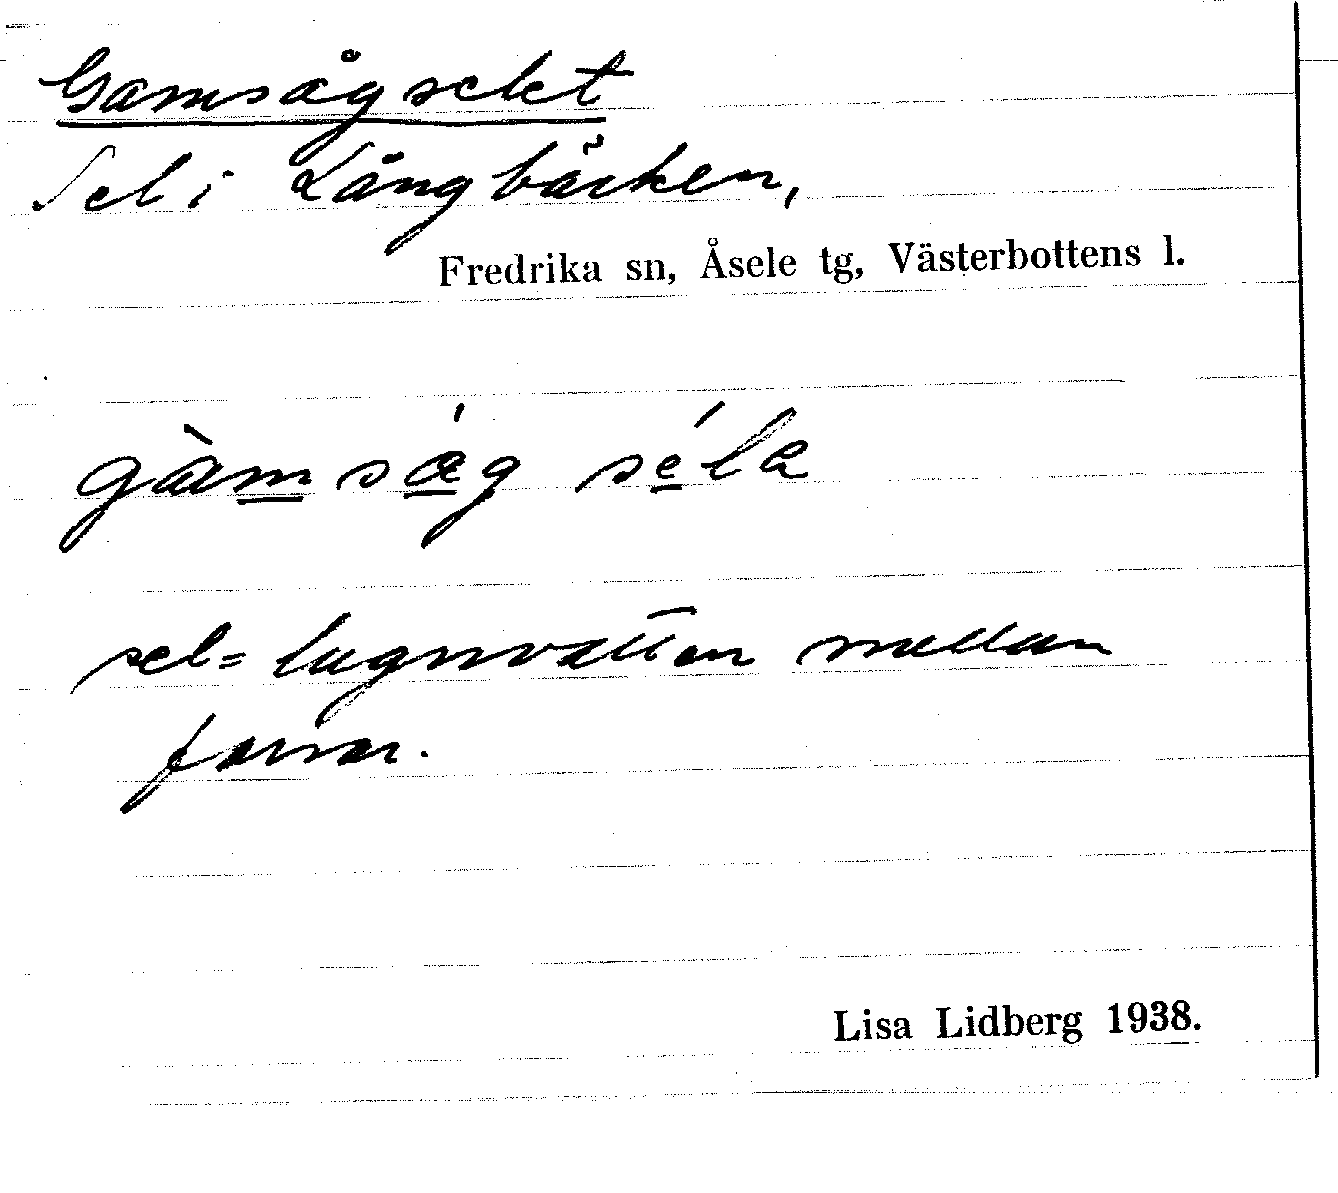 Gamsågselet
Sel i Långbäcken,
Fredrika sn, Åsele tg, Västerbottens l.
gàmsǽg séla
sel = lugnvatten mellan
forsar.
Lisa Lidberg 1938.